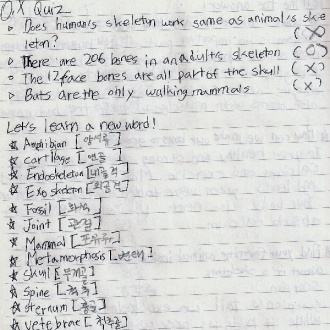 O,X Quiz
Does human's skeleton work same as animal's ske
leton? (X)
There are 206 bones in an adult's skeleton (O)
The 12 face bones are all part of the skull (X)
Bats are the only walking mammals (X)
Let's learn a new word!
☆ Amphibian [양서류]
☆ Cartilage [연골]
☆ Endoskeleton [내골격]
☆ Exoskeleton [외골격]
☆ Fossil [화석]
☆ Joint [관절]
☆ Mammal [포유류]
☆ Metamorphosis [변태]
☆ Skull [두개골]
☆ Spine [척추]
☆ Sternum [흉골]
☆ Vetebrae [척추골]